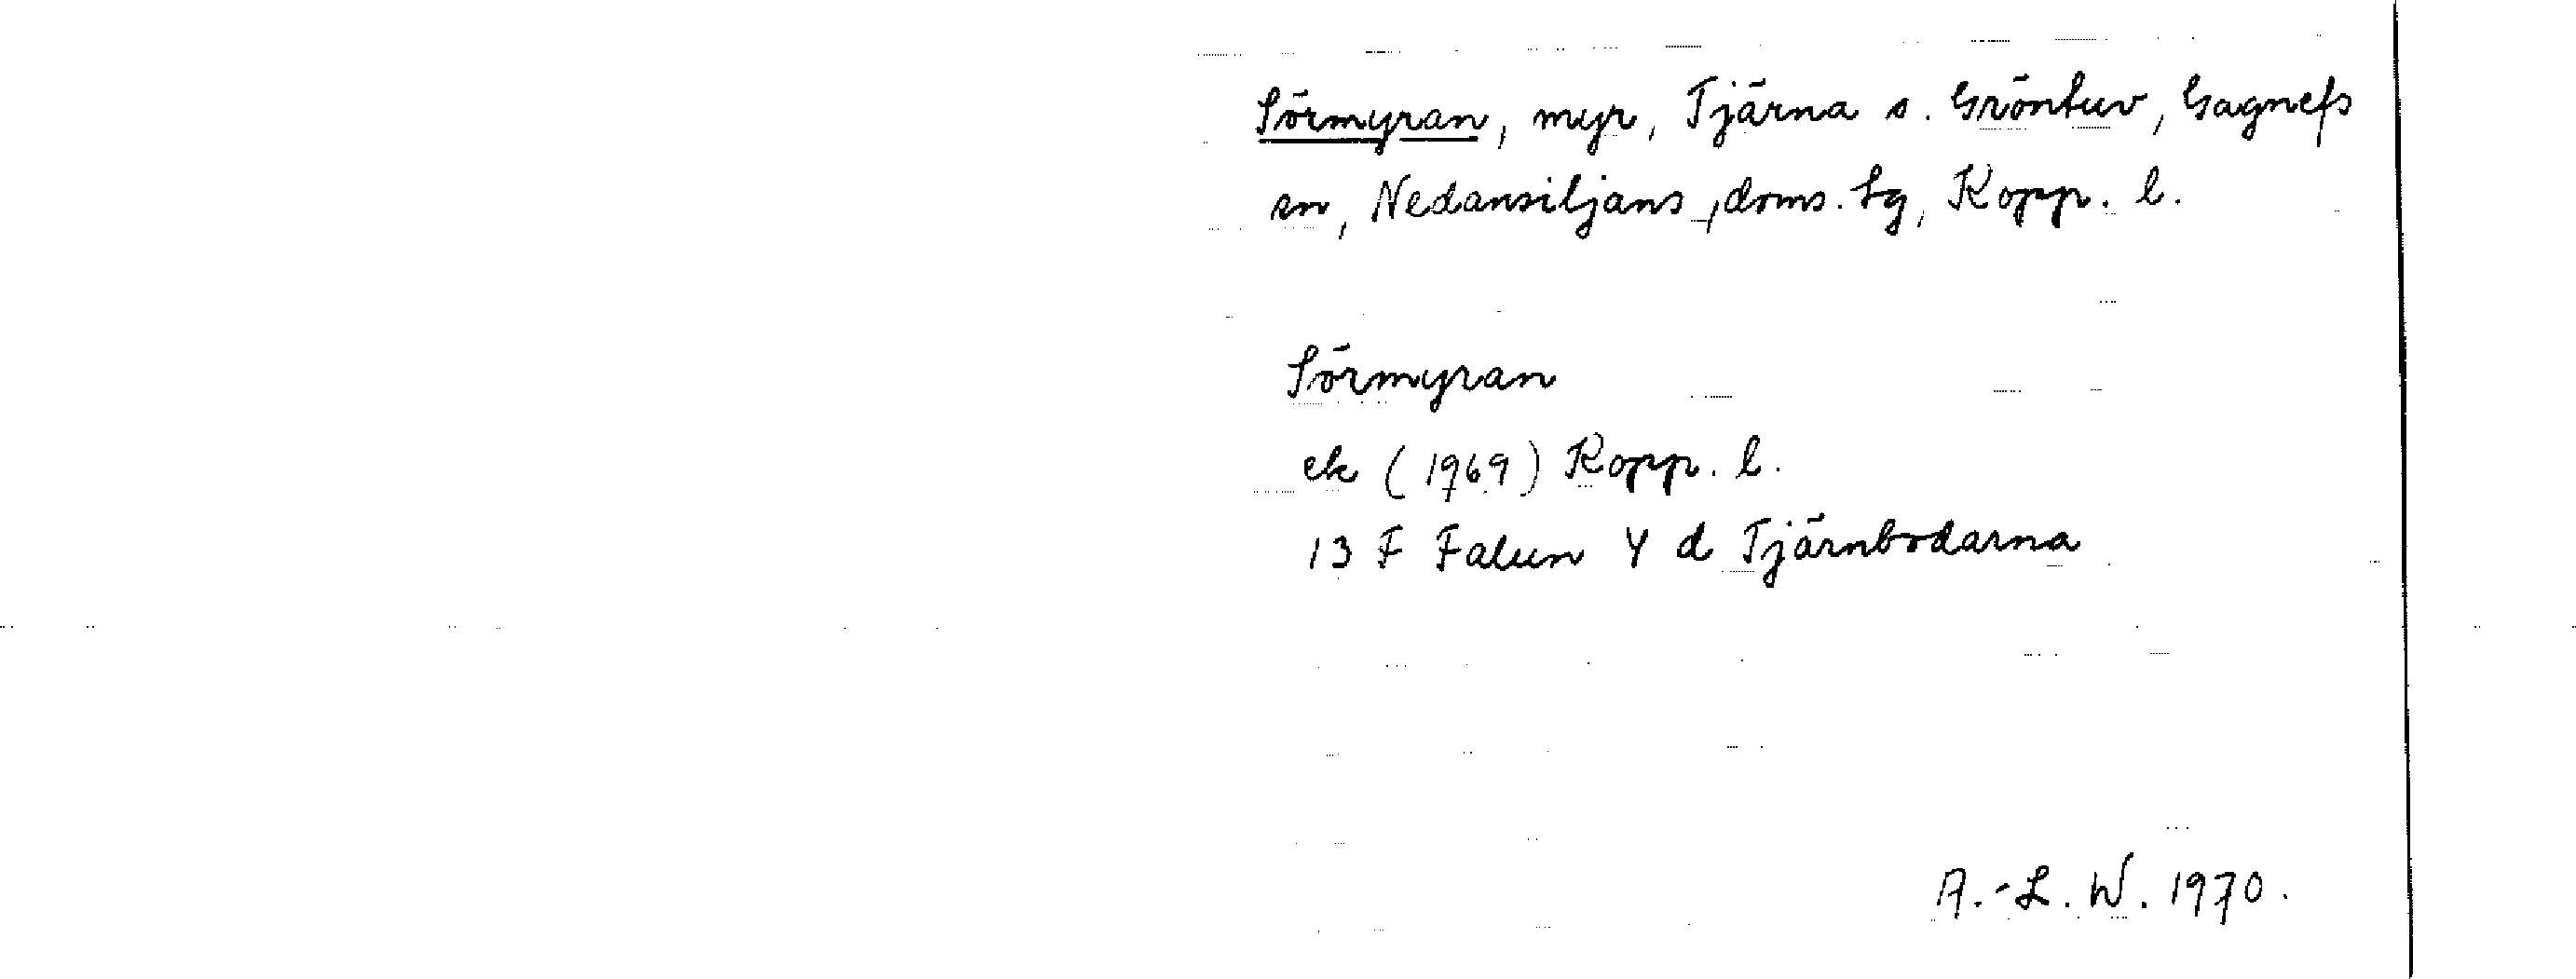 Sörmyran, myr, Tjärna s. Gröntuv, Gagnefs
sn, Nedansiljans doms. tg, Kopp. l.
Sörmyran
ek (1969) Kopp. l.
13 F Falun Y d Tjärnbodarna
A.-L. W. 1970.